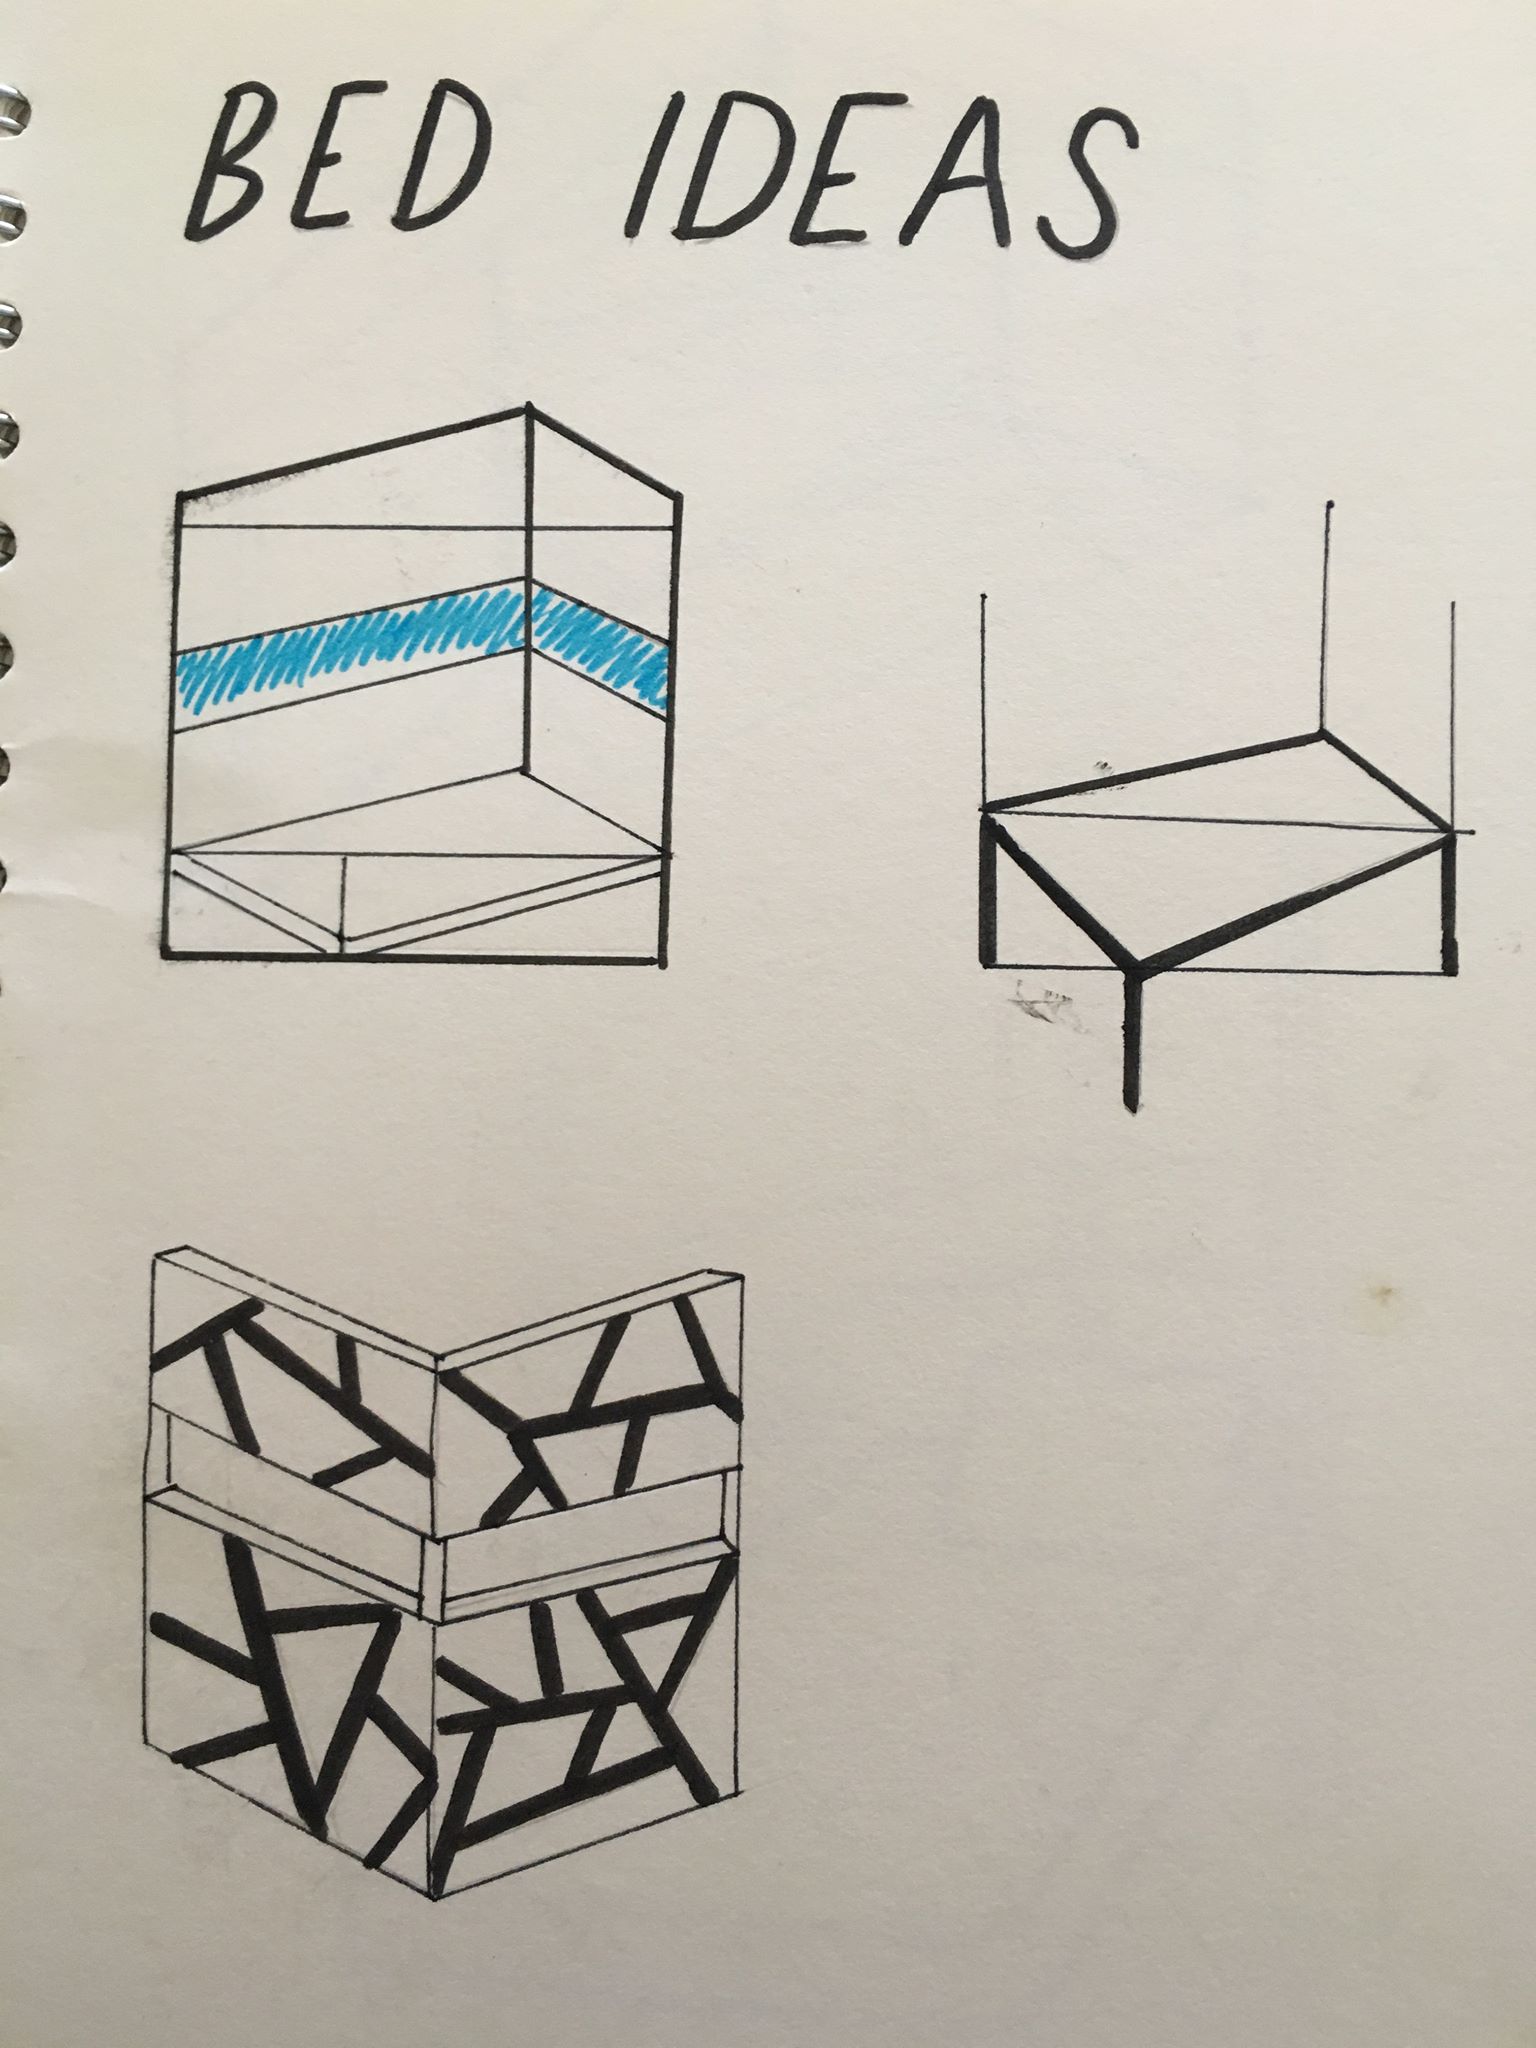 BED IDEAS